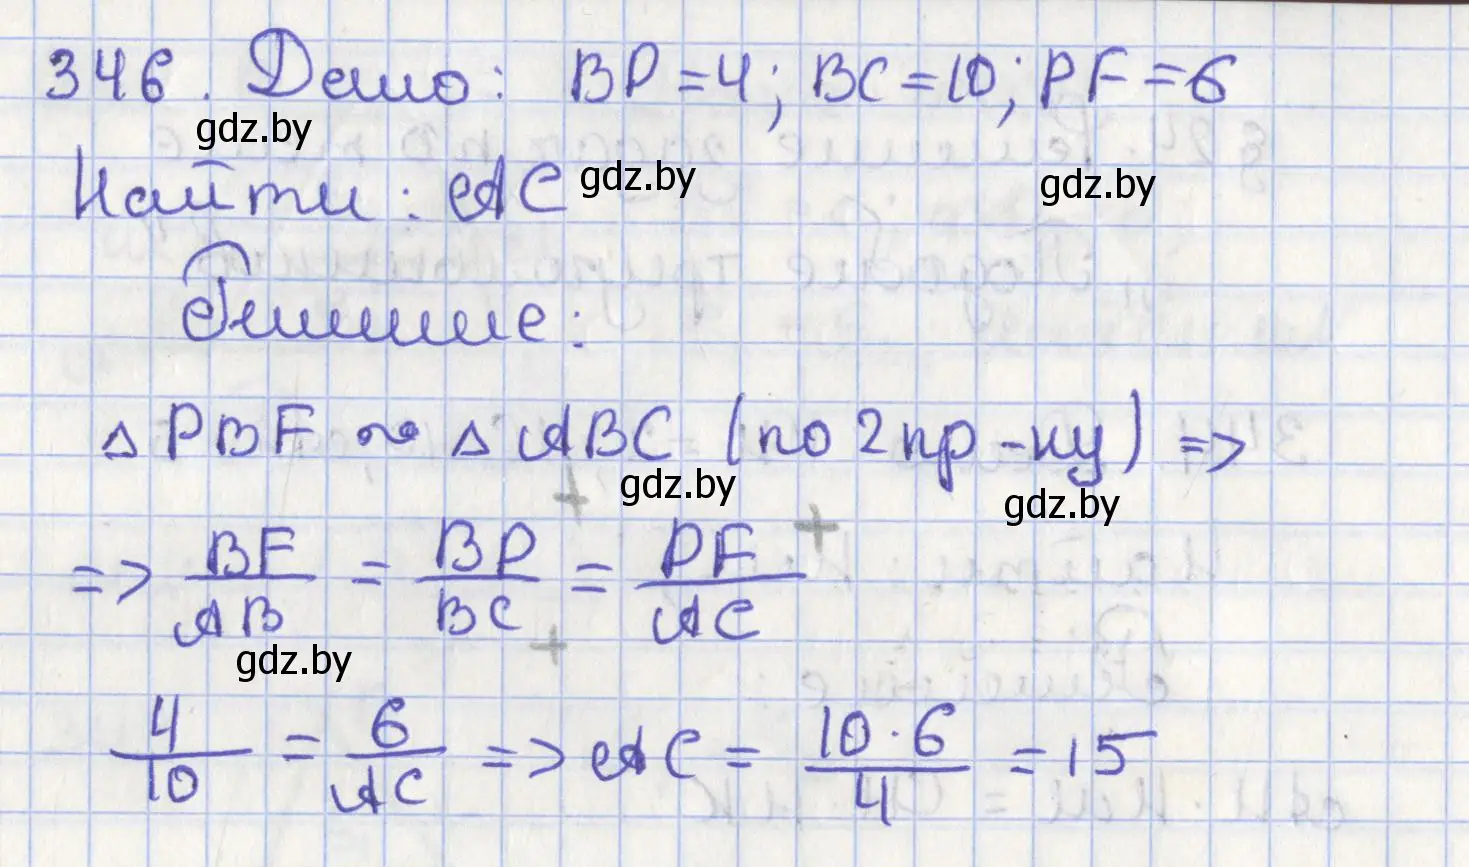 346. Дано: BP = 4; BC = 10; PF = 6
gdz.by
Найти: AC gdz.by gdz.by
Решение:
△ PBF ∾ △ ABC (по 2 пр-ку) =>
gdz.by gdz.by
=> BF/AB = BP/BC = PF/AC
gdz.by
4/10 = 6/AC => AC = 10 · 6/4 = 15